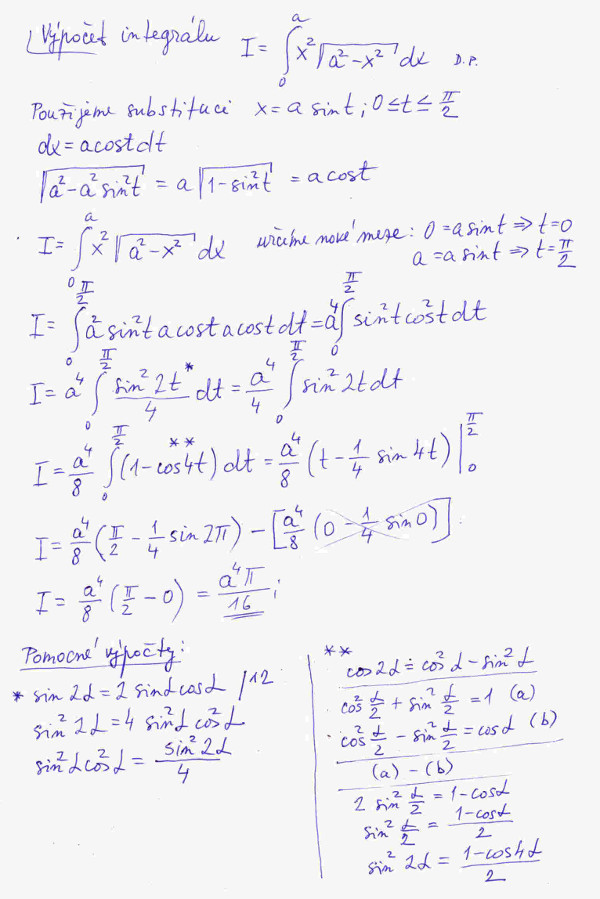 Výpočet integrálu I = ∫₀ᵃ x²√(a²-x²) dx D.P.
Použijeme substituci x = a sin t; 0 ≤ t ≤ π/2
dx = a cos t dt
√(a²-a² sin²t) = a √(1-sin²t) = a cos t
I = ∫₀ᵃ x² √(a²-x²) dx určíme nové meze: 0 = a sin t ⇒ t = 0
a = a sin t ⇒ t = π/2
I = ∫₀^(π/2) a² sin²t a cos t a cos t dt = a⁴ ∫₀^(π/2) sin²t cos²t dt
I = a⁴ ∫₀^(π/2) sin²2t/4 * dt = a⁴/4 ∫₀^(π/2) sin²2t dt
I = a⁴/8 ∫₀^(π/2) (1-cos4t) ** dt = a⁴/8 (t - 1/4 sin 4t) |₀^(π/2)
I = a⁴/8 (π/2 - 1/4 sin 2π) - [a⁴/8 (0 - 1/4 sin 0)]
I = a⁴/8 (π/2 - 0) = a⁴π/16;
Pomocné výpočty:
* sin 2α = 2 sinα cosα /²
sin² 2α = 4 sin²α cos²α
sin²α cos²α = sin² 2α/4
**
cos 2α = cos²α - sin²α
cos² α/2 + sin² α/2 = 1 (a)
cos² α/2 - sin² α/2 = cosα (b)
(a) - (b)
2 sin² α/2 = 1-cosα
sin² α/2 = (1-cosα)/2
sin² 2α = (1-cos4α)/2